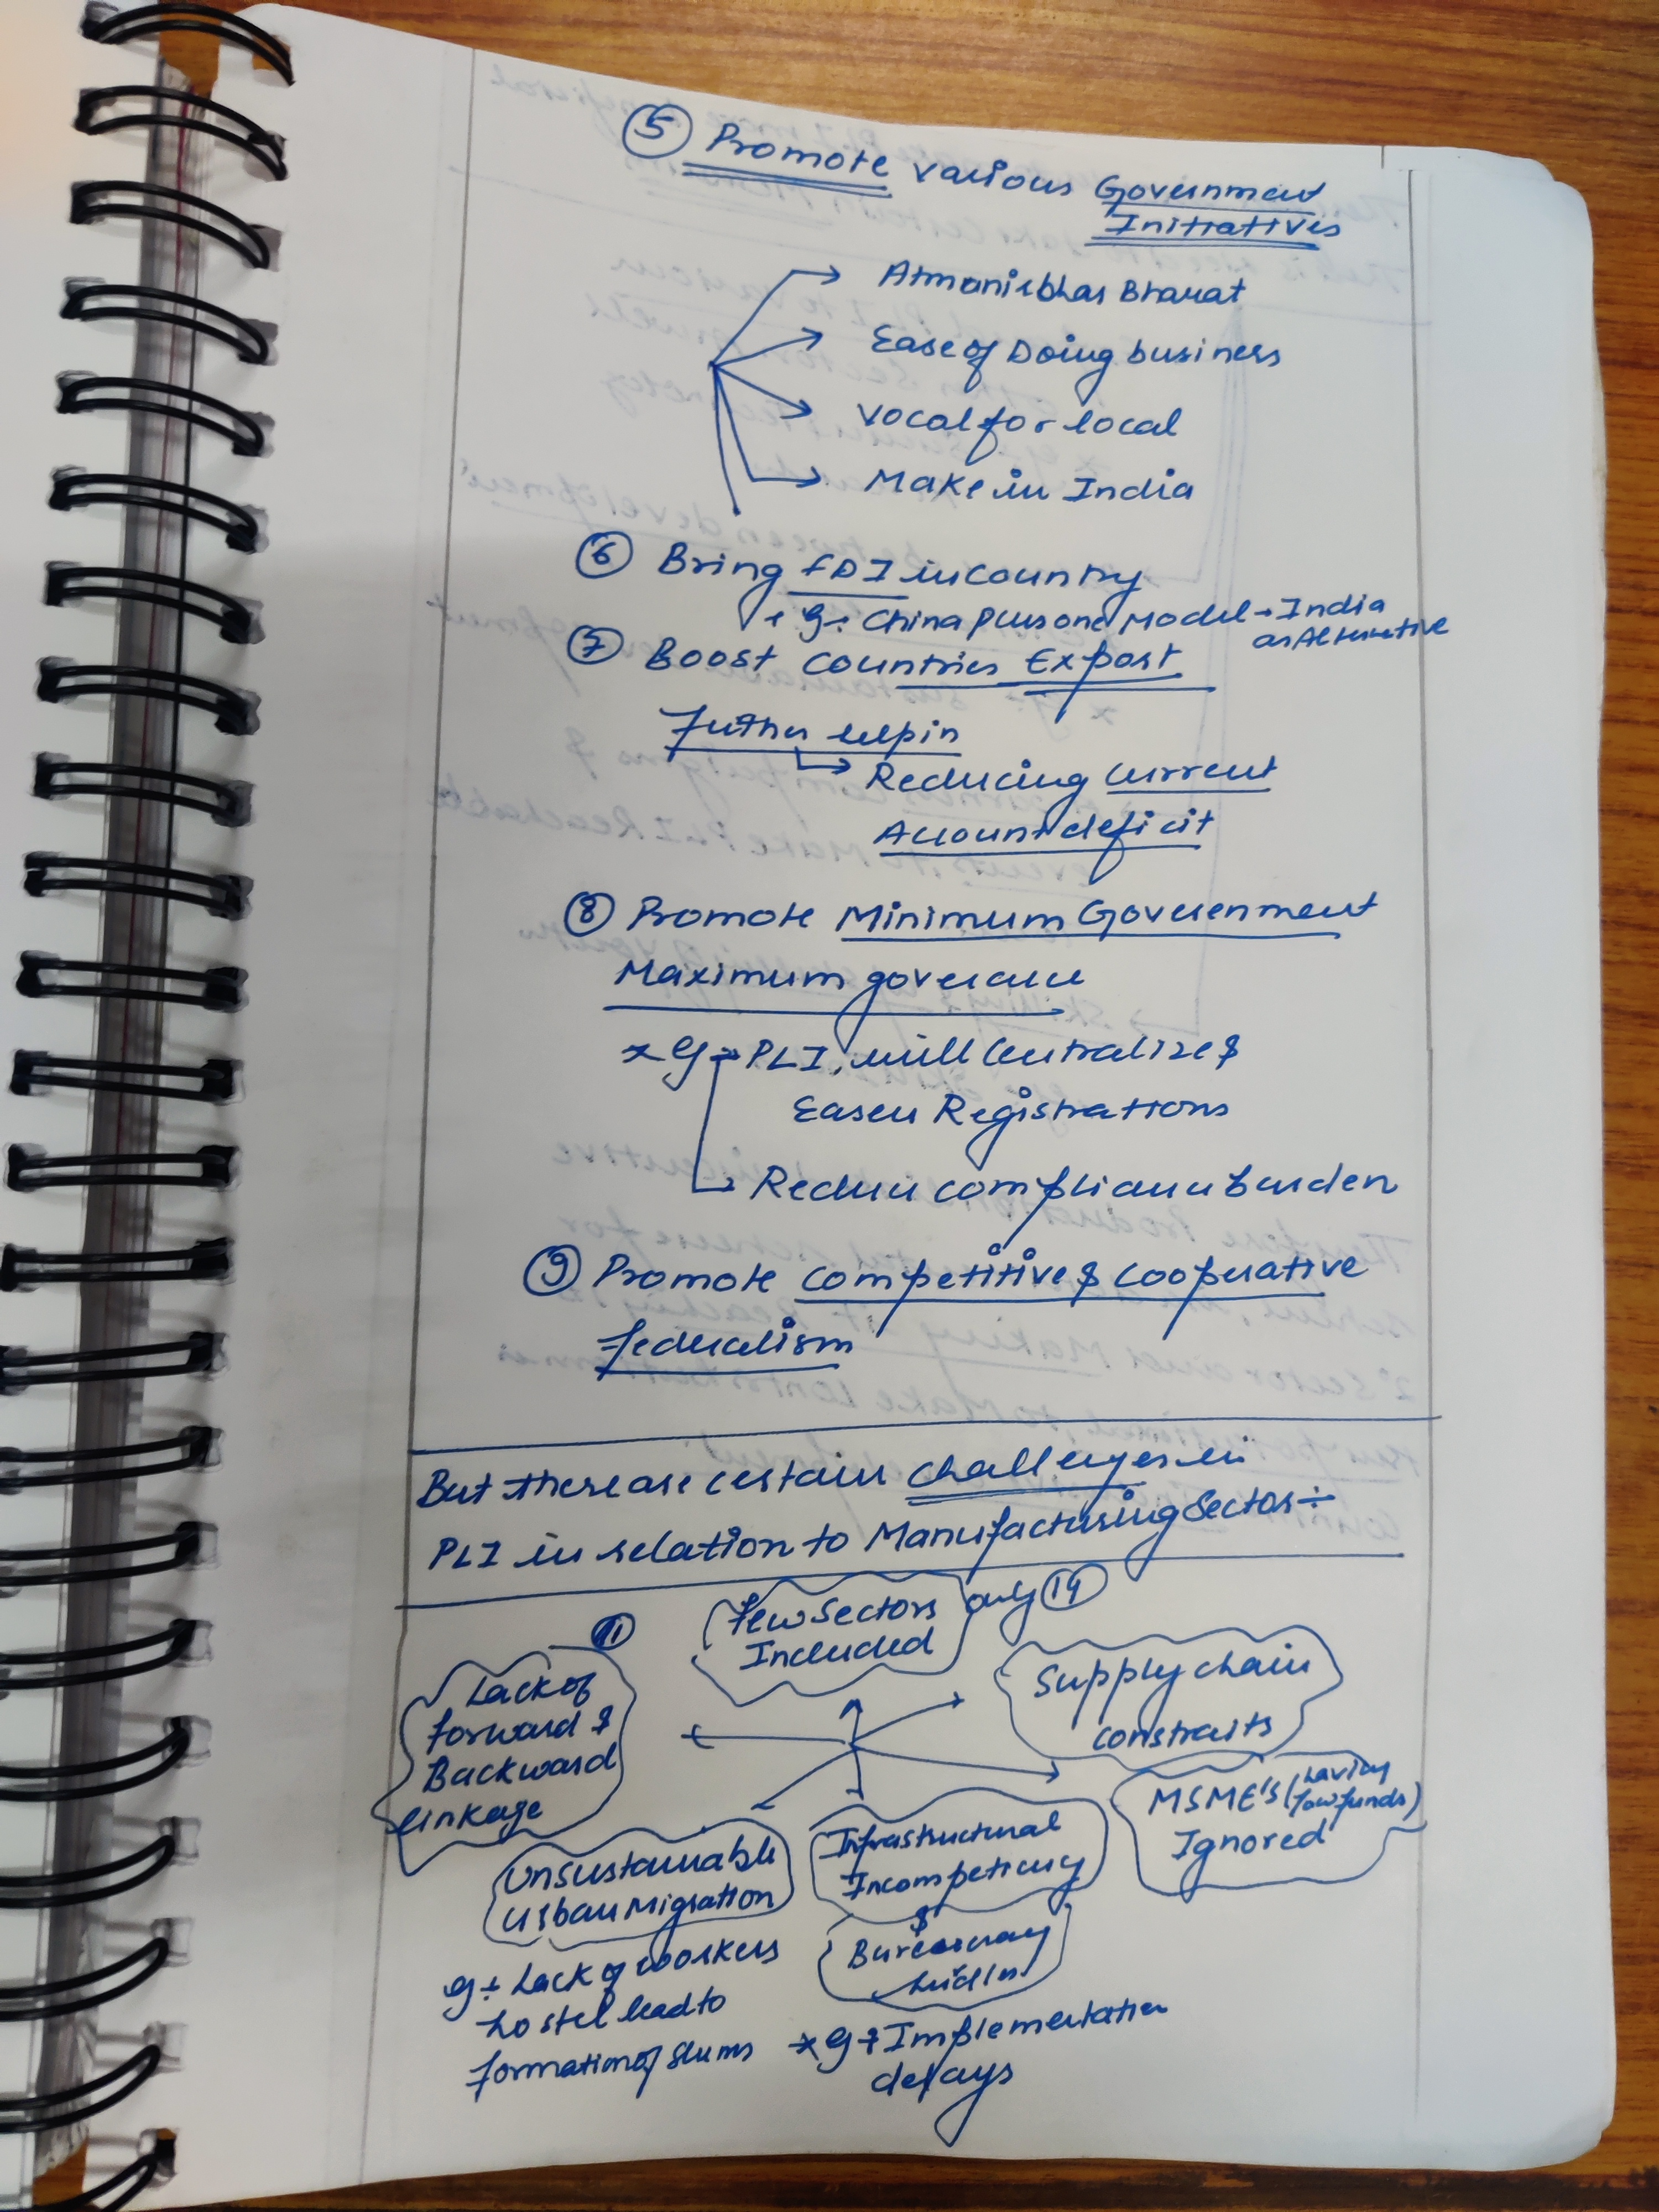 ⑤ Promote various Government
Initiatives
→ Atmanirbhar Bharat
→ Ease of Doing business
→ vocal for local
→ Make in India
⑥ Bring FDI in country
eg:- China Plus one Model → India
as Alternative
⑦ Boost countries Export
Further help in
→ Reducing current
Account deficit
⑧ Promote Minimum Government
Maximum goverance
eg → PLI, will Centralize &
Easen Registrations
→ Reduce compliance burden
⑨ Promote competitive & cooperative
federalism
But there are certain challenges in
PLI in relation to Manufacturing Sector ÷
Few Sectors only ⑭
Included
Lack of
forward &
Backward
linkage
Supply chain
constraits
MSME's (having
low funds)
Ignored
Unsustainable
Urban Migration
eg ÷ Lack of workers
hostel lead to
formation of slums
Infrastructural
Incompetency
&
Bureacracy
eg ÷ Implementation
delays